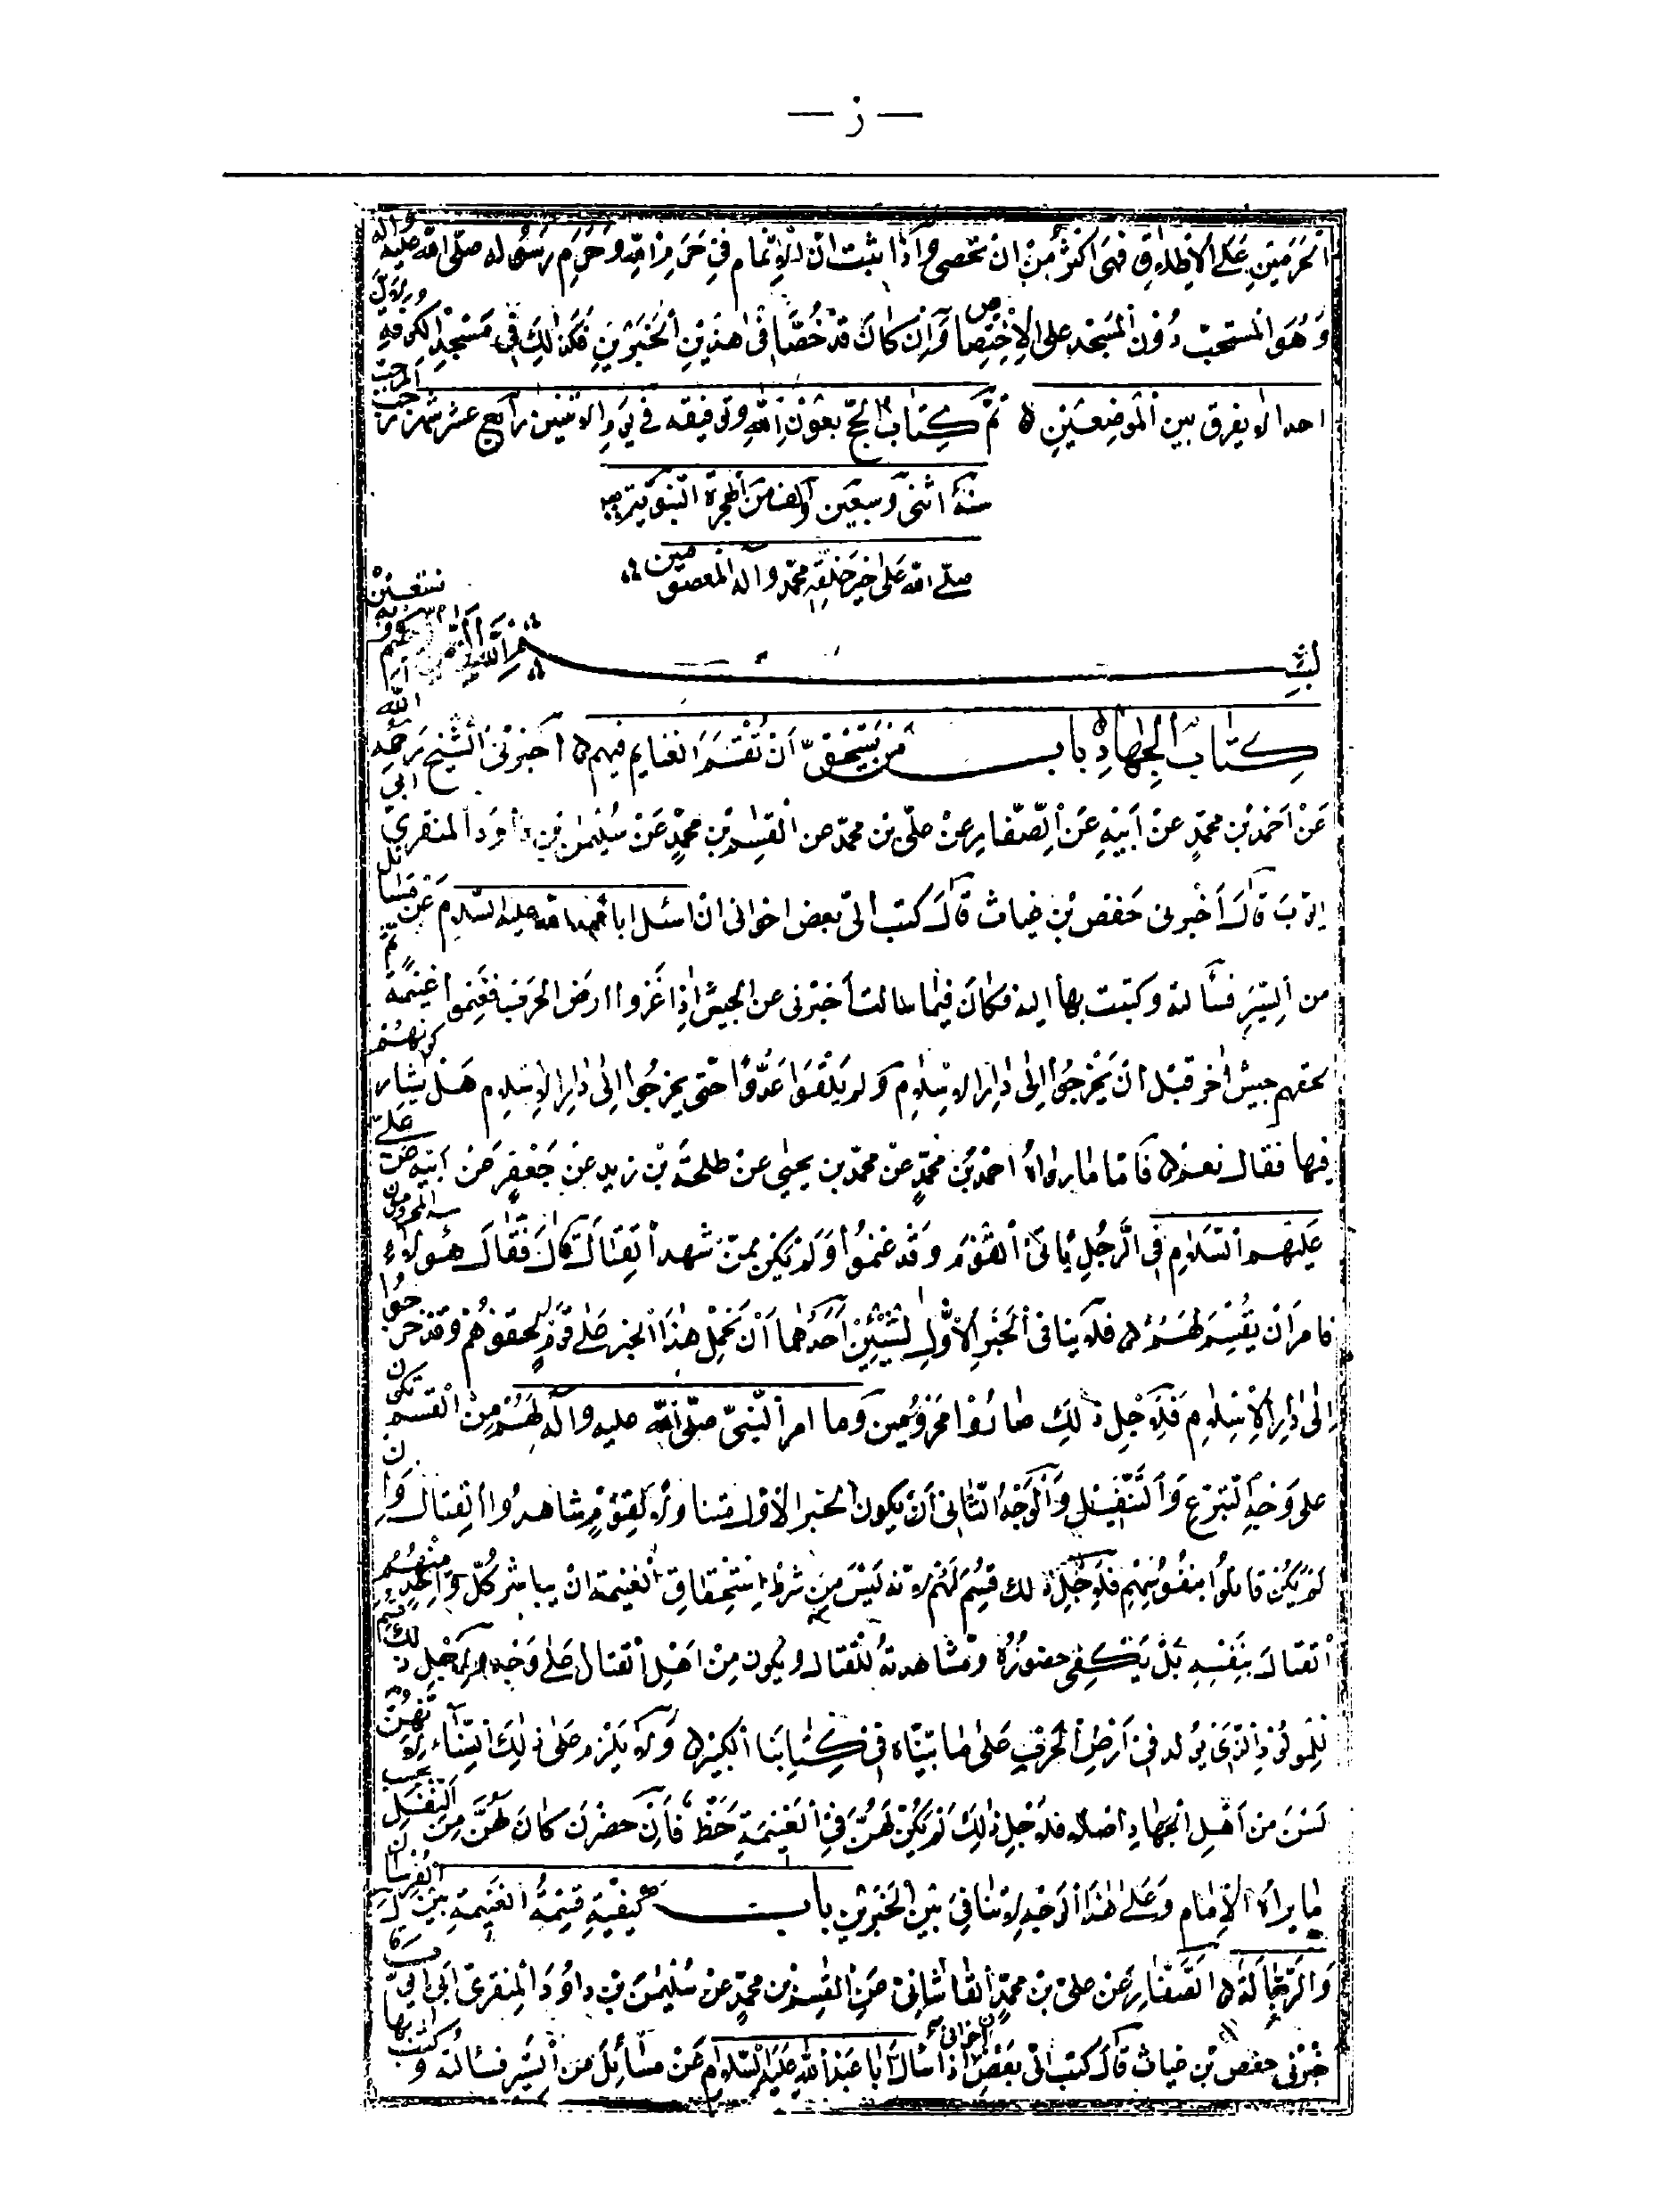 — ز —
الحرمين على الإطلاق فهى أكثر من ان تحصى وإذا ثبت ان الإتمام في حرم الله وحرم رسوله صلى الله عليه وآله
وهو المستحب دون المسجد على الإختصاص وإن كان قد خصا في هذين الخبرين فكذلك في مسجد الكوفة
احدا لا يفرق بين الموضعين تم كتاب الحج بعون الله وتوفيقه في يوم الاثنين رابع عشر شهر رجب المرجب
سنة اثنى وسبعين وألف من الهجرة النبوية
صلى الله على خير خلقه محمد وآله المعصومين
بسم الله الرحمن الرحيم وبه نستعين
كتاب الجهاد باب من يستحق أن تقسم الغنايم فيهم أخبرنى الشيخ رحمه الله
عن أحمد بن محمد عن أبيه عن الصفار عن علي بن محمد عن القسم بن محمد عن سليمن بن داود المنقري أبي
ايوب قال أخبرنى حفص بن غياث قال كتب الىّ بعض اخوانى ان اسئل ابا عبد الله عليه السلام عن مسائل
من السير فسألته وكتبت بها اليه فكان فيما سالت أخبرنى عن الجيش إذا غزوا ارض الحرب فغنموا غنيمة ثم
لحقهم جيش اخر قبل أن يخرجوا إلى دار الاسلام ولم يلقوا عدوًا حتى يخرجوا إلى دار الإسلام هل يشاركونهم
فيها فقال نعم فاما ما رواه احمد بن محمد عن محمد بن يحيى عن طلحة بن زيد عن جعفر عن أبيه عن علي
عليهم السلام في الرجل يأتى القوم وقد غنموا ولم يكن ممن شهد القتال قال فقال هؤلاء المحرومون
فامر أن يقسم لهم فلا ينافى الخبر الأول لشيئين أحدهما أن نحمل هذا الخبر على قوم لحقوهم وقد خرجوا
إلى دار الإسلام فلأجل ذلك صاروا محرومين وما امر النبىّ صلى الله عليه وآله لهم من القسم يكون
على وجه التبرع والتنفيل والوجه الثانى أن يكون الخبر الاول متناولا لقوم شاهدوا القتال وإن
لم يكن قاتلوا بنفوسهم فلأجل ذلك قسم لهم لأنه ليس من شرط استحقاق الغنيمة ان يباشر كل واحد منهم
القتال بنفسه بل يكفى حضوره ومشاهدته للقتال ويكون من اهل القتال على وجه ولأجل ذلك قسم
للمولود الذى يولد في أرض الحرب على ما بيّنّاه في كتابنا الكبير ولا يلزم على ذلك النساء لأنهن
لسن من أهل الجهاد اصلا فلأجل ذلك لم يكن لهن في الغنيمة حظ فأن حضرن كان لهن من النفل بحسب
ما يراه الإمام وعلى هذا الوجه لا تنافى بين الخبرين باب كيفية قسمة الغنيمة بين الفرسان
والرجالة الصفار عن على بن محمد القاشانى عن القسم بن محمد عن سليمن بن داود المنقرى أبى ايوب قال
خبرنى حفص بن غياث قال كتب الىّ بعض اخوانى أن اسأل أبا عبد الله عليه السلام عن مسائل من السير فسألته وكتبت بها